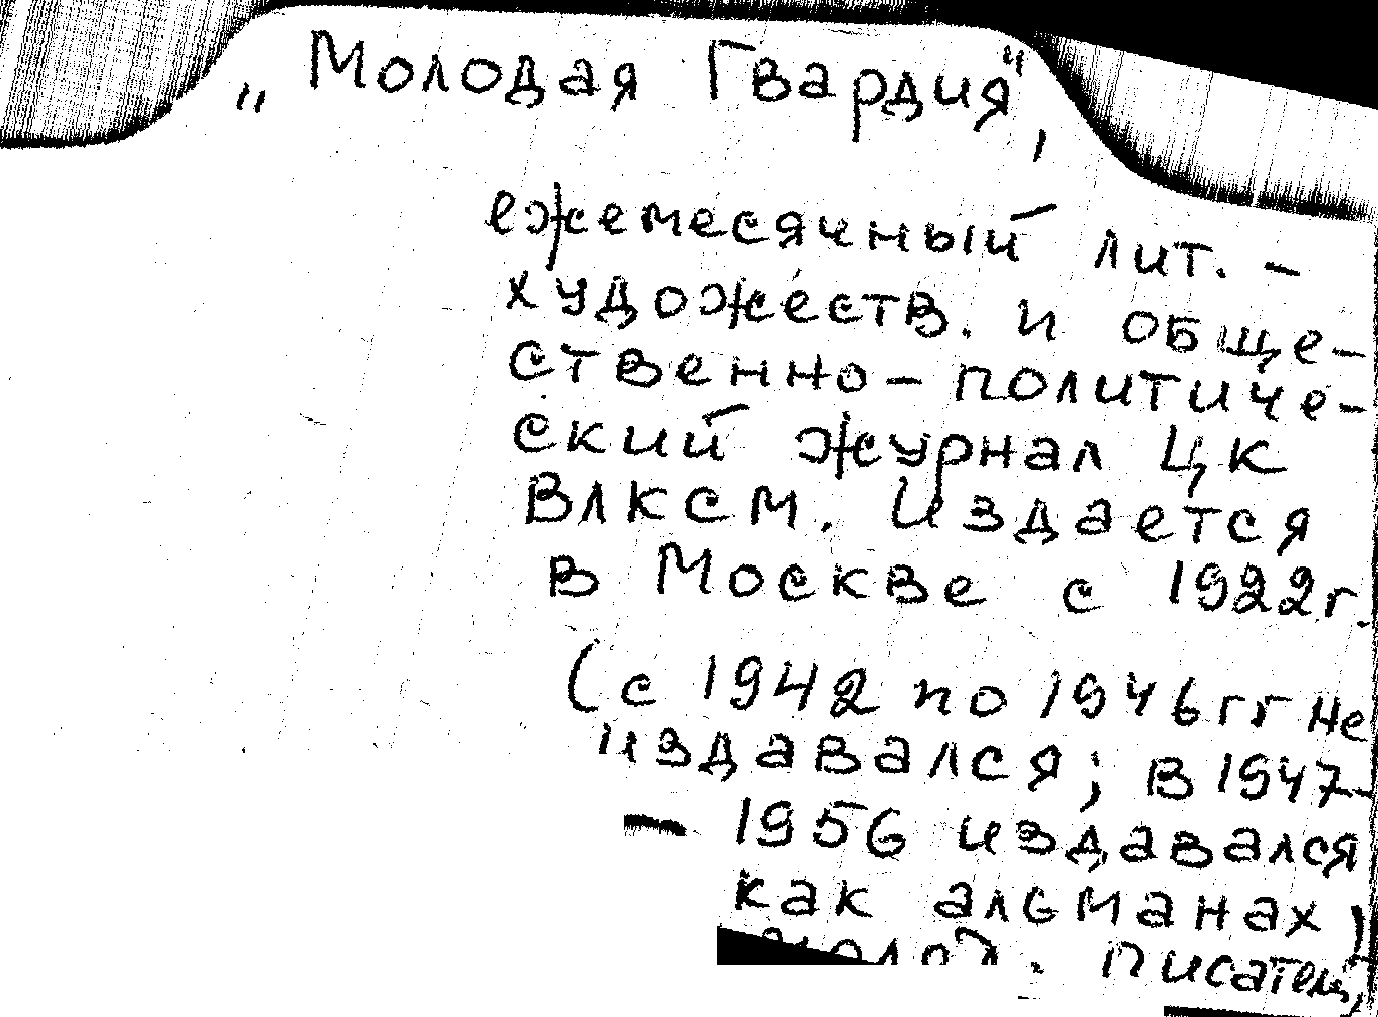 „Молодая Гвардия",
ежемесячный лит. -
художеств. и обще-
ственно - политиче-
ский журнал ЦК
ВЛКСМ. Издается
в Москве с 1922г.
(с 1942 по 1946гг не
издавался; в 1947-
- 1956 издавался
как альманах)
молод.